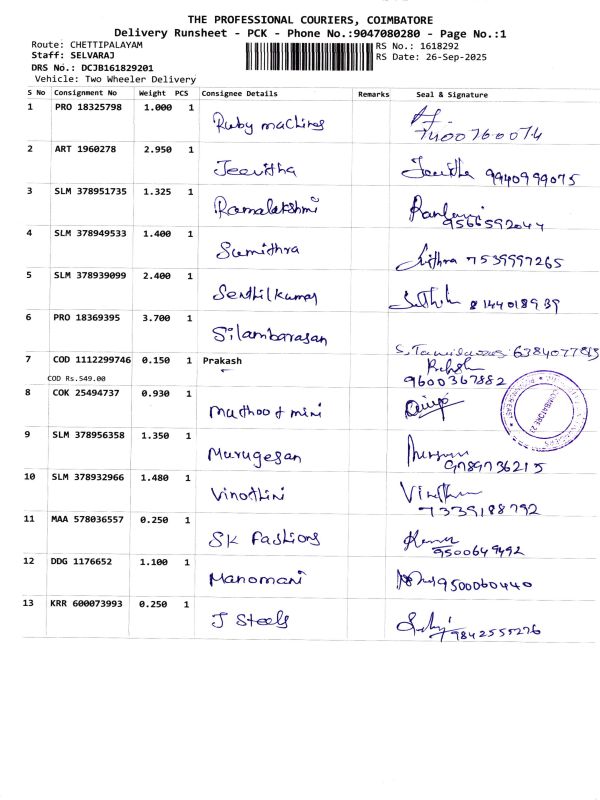 THE PROFESSIONAL COURIERS, COIMBATORE
Delivery Runsheet - PCK - Phone No.:9047080280 - Page No.:1
Route: CHETTIPALAYAM RS No.: 1618292
Staff: SELVARAJ RS Date: 26-Sep-2025
DRS No.: DCJB161829201
Vehicle: Two Wheeler Delivery
S No Consignment No Weight PCS Consignee Details Remarks Seal & Signature
1 PRO 18325798 1.000 1 Ruby machines
7400760074
2 ART 1960278 2.950 1 Jeevitha Jeevitha 9940999075
3 SLM 378951735 1.325 1 Ramalakshmi
9566592044
4 SLM 378949533 1.400 1 Sumithra 7539997265
5 SLM 378939099 2.400 1 Senthilkumar 8144018939
6 PRO 18369395 3.700 1 Silambarasan
7 COD 1112299746 0.150 1 Prakash
COD Rs.549.00 9600367882
8 COK 25494737 0.930 1 muthoot mini
COIMBATORE
9 SLM 378956358 1.350 1 Murugesan
9789736215
10 SLM 378932966 1.480 1 Vinothini
7339188792
11 MAA 578036557 0.250 1 SK Fashions
9500649492
12 DDG 1176652 1.100 1 Manomani 9500060440
13 KRR 600073993 0.250 1 J Steels
9842555276